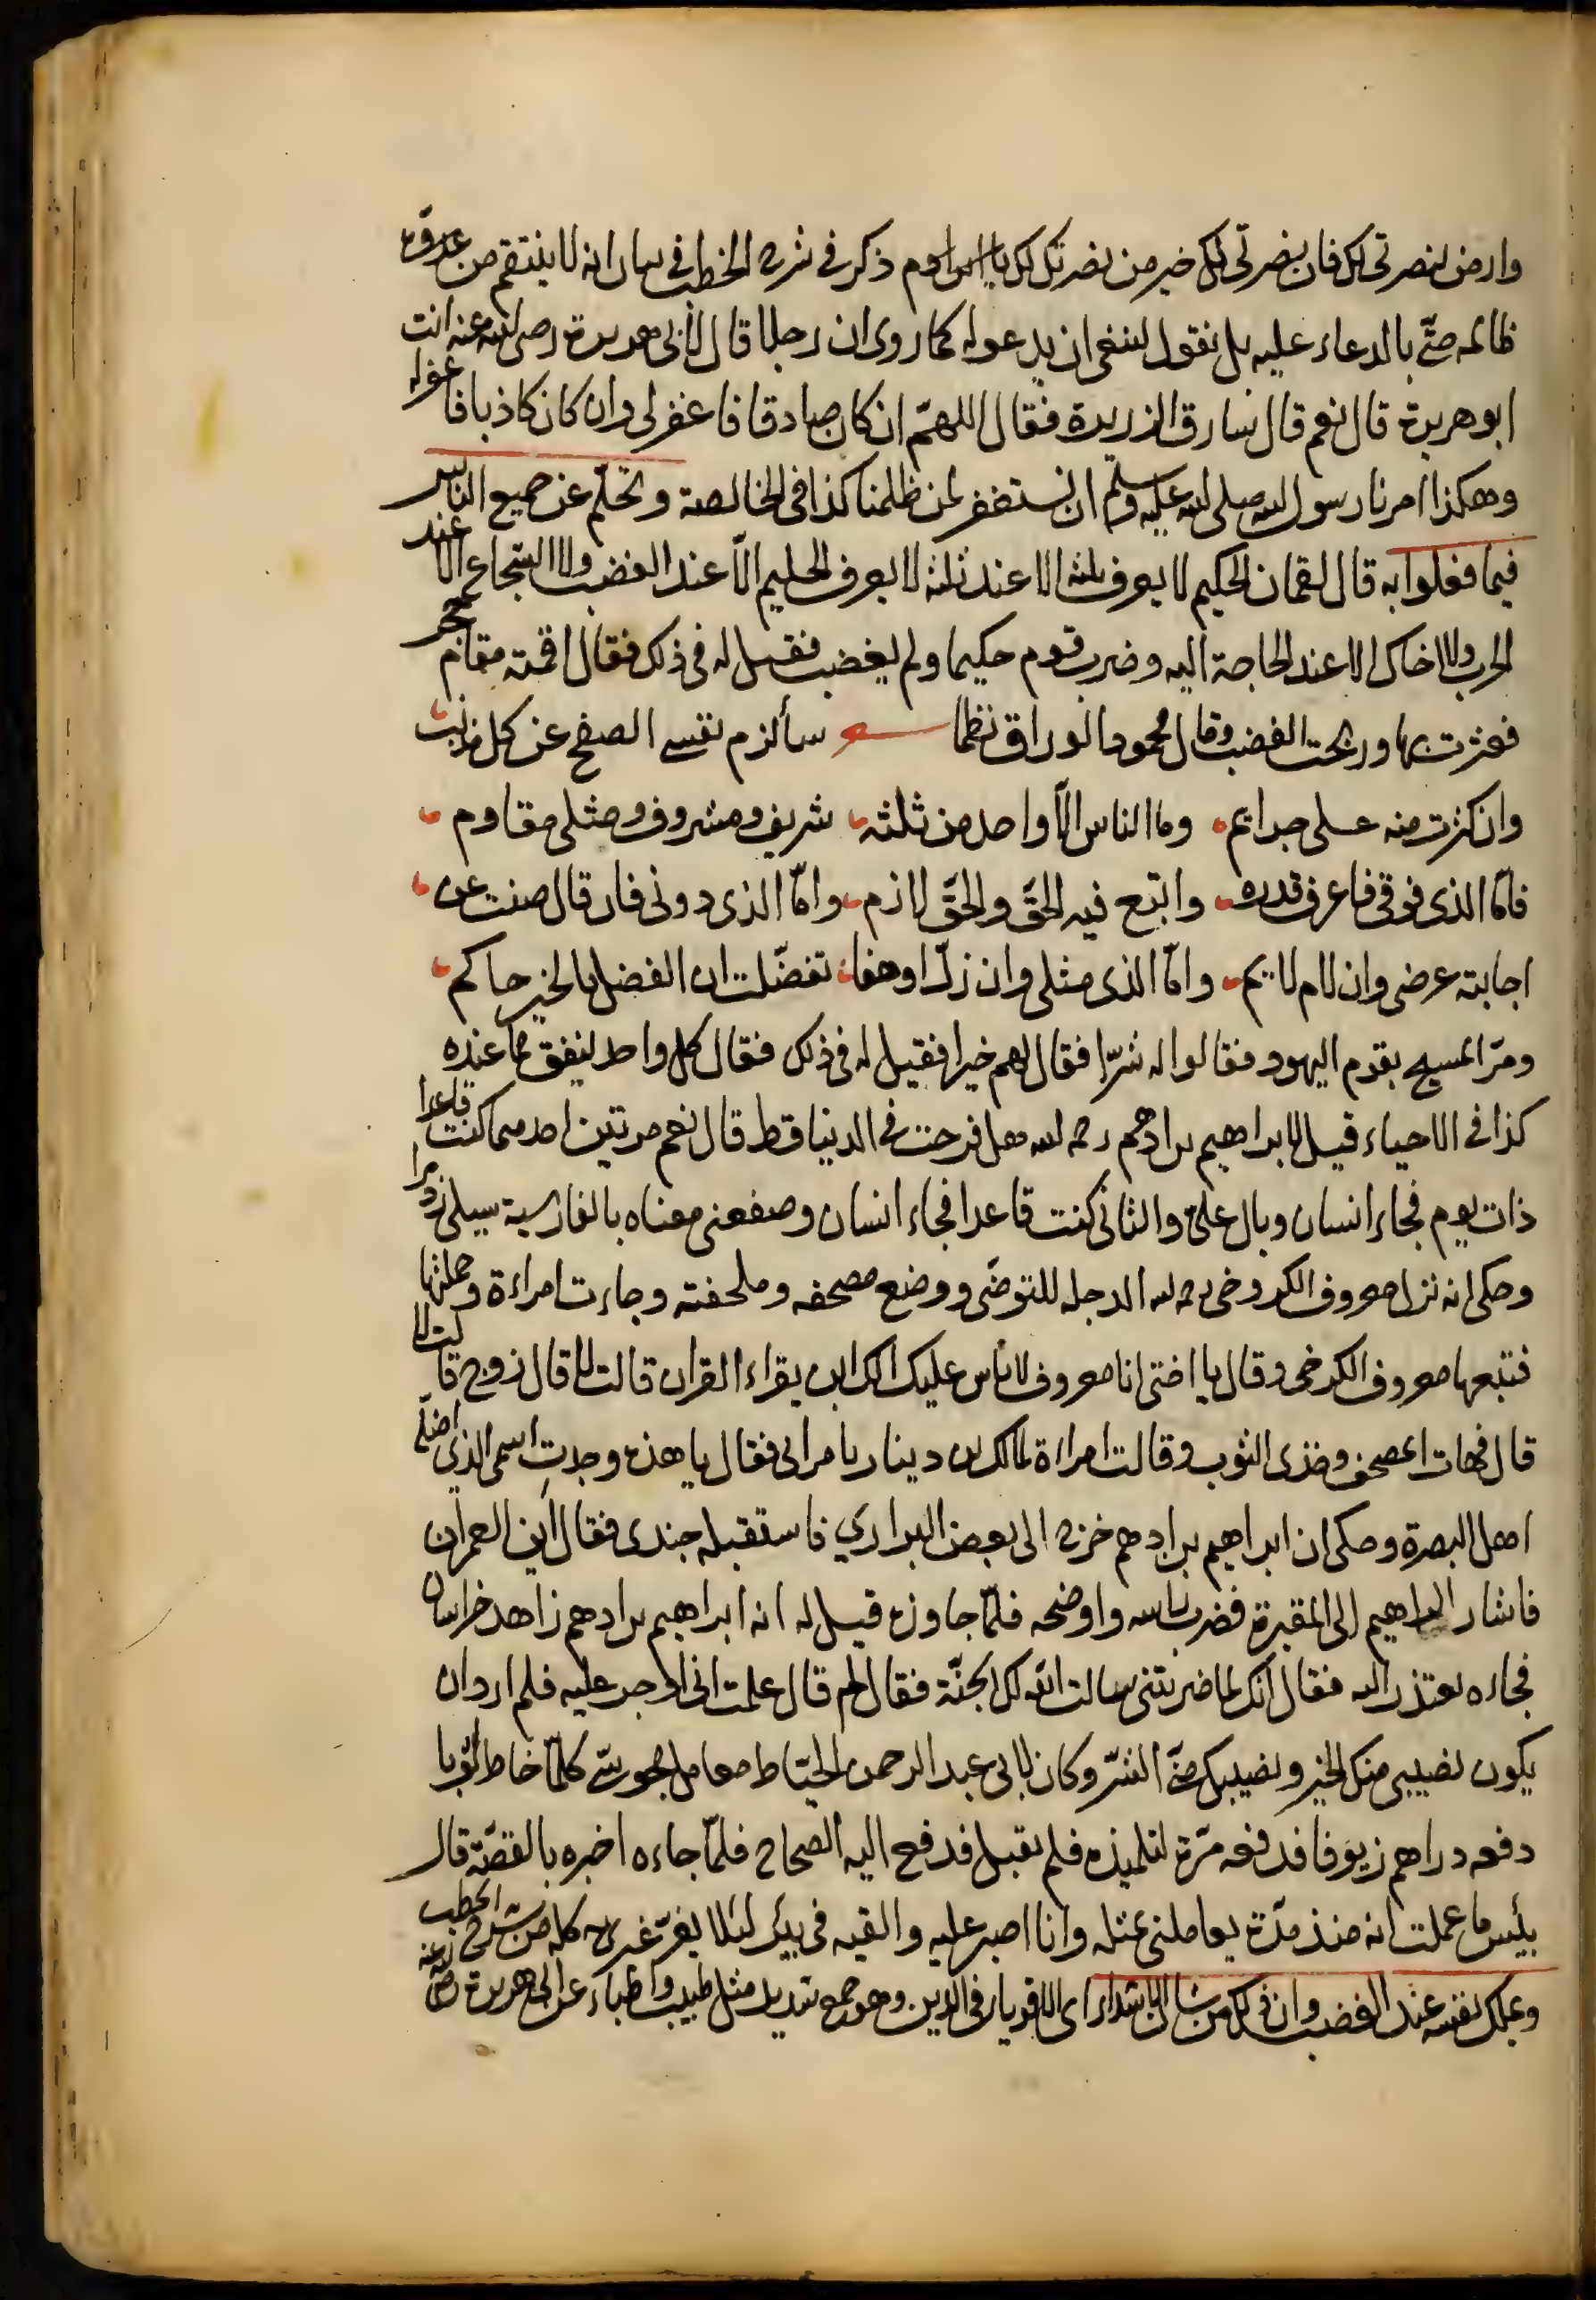 وارض بنصرتى لك فان بنصرتى لك خير من نصرتك لك يا ابن ادم ذكر فى شرح الخطب فى بيان انه لا ينتقم من عدوه
ظالمه حتى بالدعاء عليه بل نقول ينبغى ان يدعو له كما روى ان رجلا قال لابى هريرة رضى الله عنه انت
ابو هريرة قال نعم قال سارق الزريرة فقال اللهم ان كان صادقا فاغفر لى وان كان كاذبا فاغفر له
وهكذا امرنا رسول الله صلى الله عليه وسلم ان نستغفر لمن ظلمنا كذا فى الخالصة وتحلم عن جميع الناس
فيما فعلوا به قال لقمان الحكيم لا يعرف ثلثة الا عند ثلثة لا يعرف الحليم الا عند الغضب ولا الشجاع الا عند
الحرب ولا اخاك الا عند الحاجة اليه وضرب قوم حكيما ولم يغضب فقيل له فى ذلك فقال اقمته مقام حجر
فعثرت بها وربحت الغضب وقال محمود الوراق نظما سألزم نفسى الصفح عن كل مذنب
وان كثرت منه على جرايم وما الناس الا واحد من ثلثة شريف ومشروف ومثلى مقاوم
فاما الذى فوقى فاعرف قدره واتبع فيه الحق والحق لازم واما الذى دونى فان قال صنت عن
اجابته عرضى وان لام لايم واما الذى مثلى وان زل او هفا تفضلت ان الفضل بالخير حاكم
ومر المسيح بقوم اليهود فقالوا له شرا فقال لهم خيرا فقيل له فى ذلك فقال كل واحد ينفق مما عنده
كذا فى الاحياء قيل لابراهيم بن ادهم رحمه الله هل فرحت فى الدنيا قط قال نعم مرتين احدهما كنت قاعدا
ذات يوم فجاء انسان وبال على والثانى كنت قاعدا فجاء انسان وصفعنى معناه بالفارسية سيلى زد مرا
وحكى انه نزل معروف الكرخى رحمه الله الدجلة للتوضى ووضع مصحفه وملحفته وجاءت امراءة وحملتها
فتبعها معروف الكرخى وقال يا اختى انا معروف لا باس عليك الك ابن يقراء القران قالت لا قال زوج قالت لا
قال فهات المصحف وخذى الثوب وقالت امراة لمالك بن دينار يا مرائى فقال يا هذه وجدت اسمى الذى اضله
اهل البصرة وحكى ان ابراهيم بن ادهم خرج الى بعض البرارى فاستقبله جندى فقال اين العمران
فاشار ابراهيم الى المقبرة فضرب راسه واوضحه فلما جاوزه قيل له انه ابراهيم بن ادهم زاهد خراسان
فجاءه يعتذر اليه فقال انك لما ضربتنى سالت الله لك الجنة فقال لم قال علمت انى اوجر عليه فلم ارد ان
يكون نصيبى منك الخير ونصيبك منى الشر وكان لابى عبد الرحمن الخياط معامل مجوسى كلما خاط له ثوبا
دفعه دراهم زيوفا فدفعه مرة لتلميذه فلم يقبل فدفع اليه الصحاح فلما جاءه اخبره بالقصة قال
بئس ما عملت انه منذ مدة يعاملنى بمثله وانا اصبر عليه والقيه فى بئر لئلا يغر غيرى كله من شرح الخطب
ويملك نفسه عند الغضب وان ذلك من شان الاشداء اى الاقوياء فى الدين وهو جمع شديد مثل طبيب واطباء عن ابى هريرة رضى الله عنه